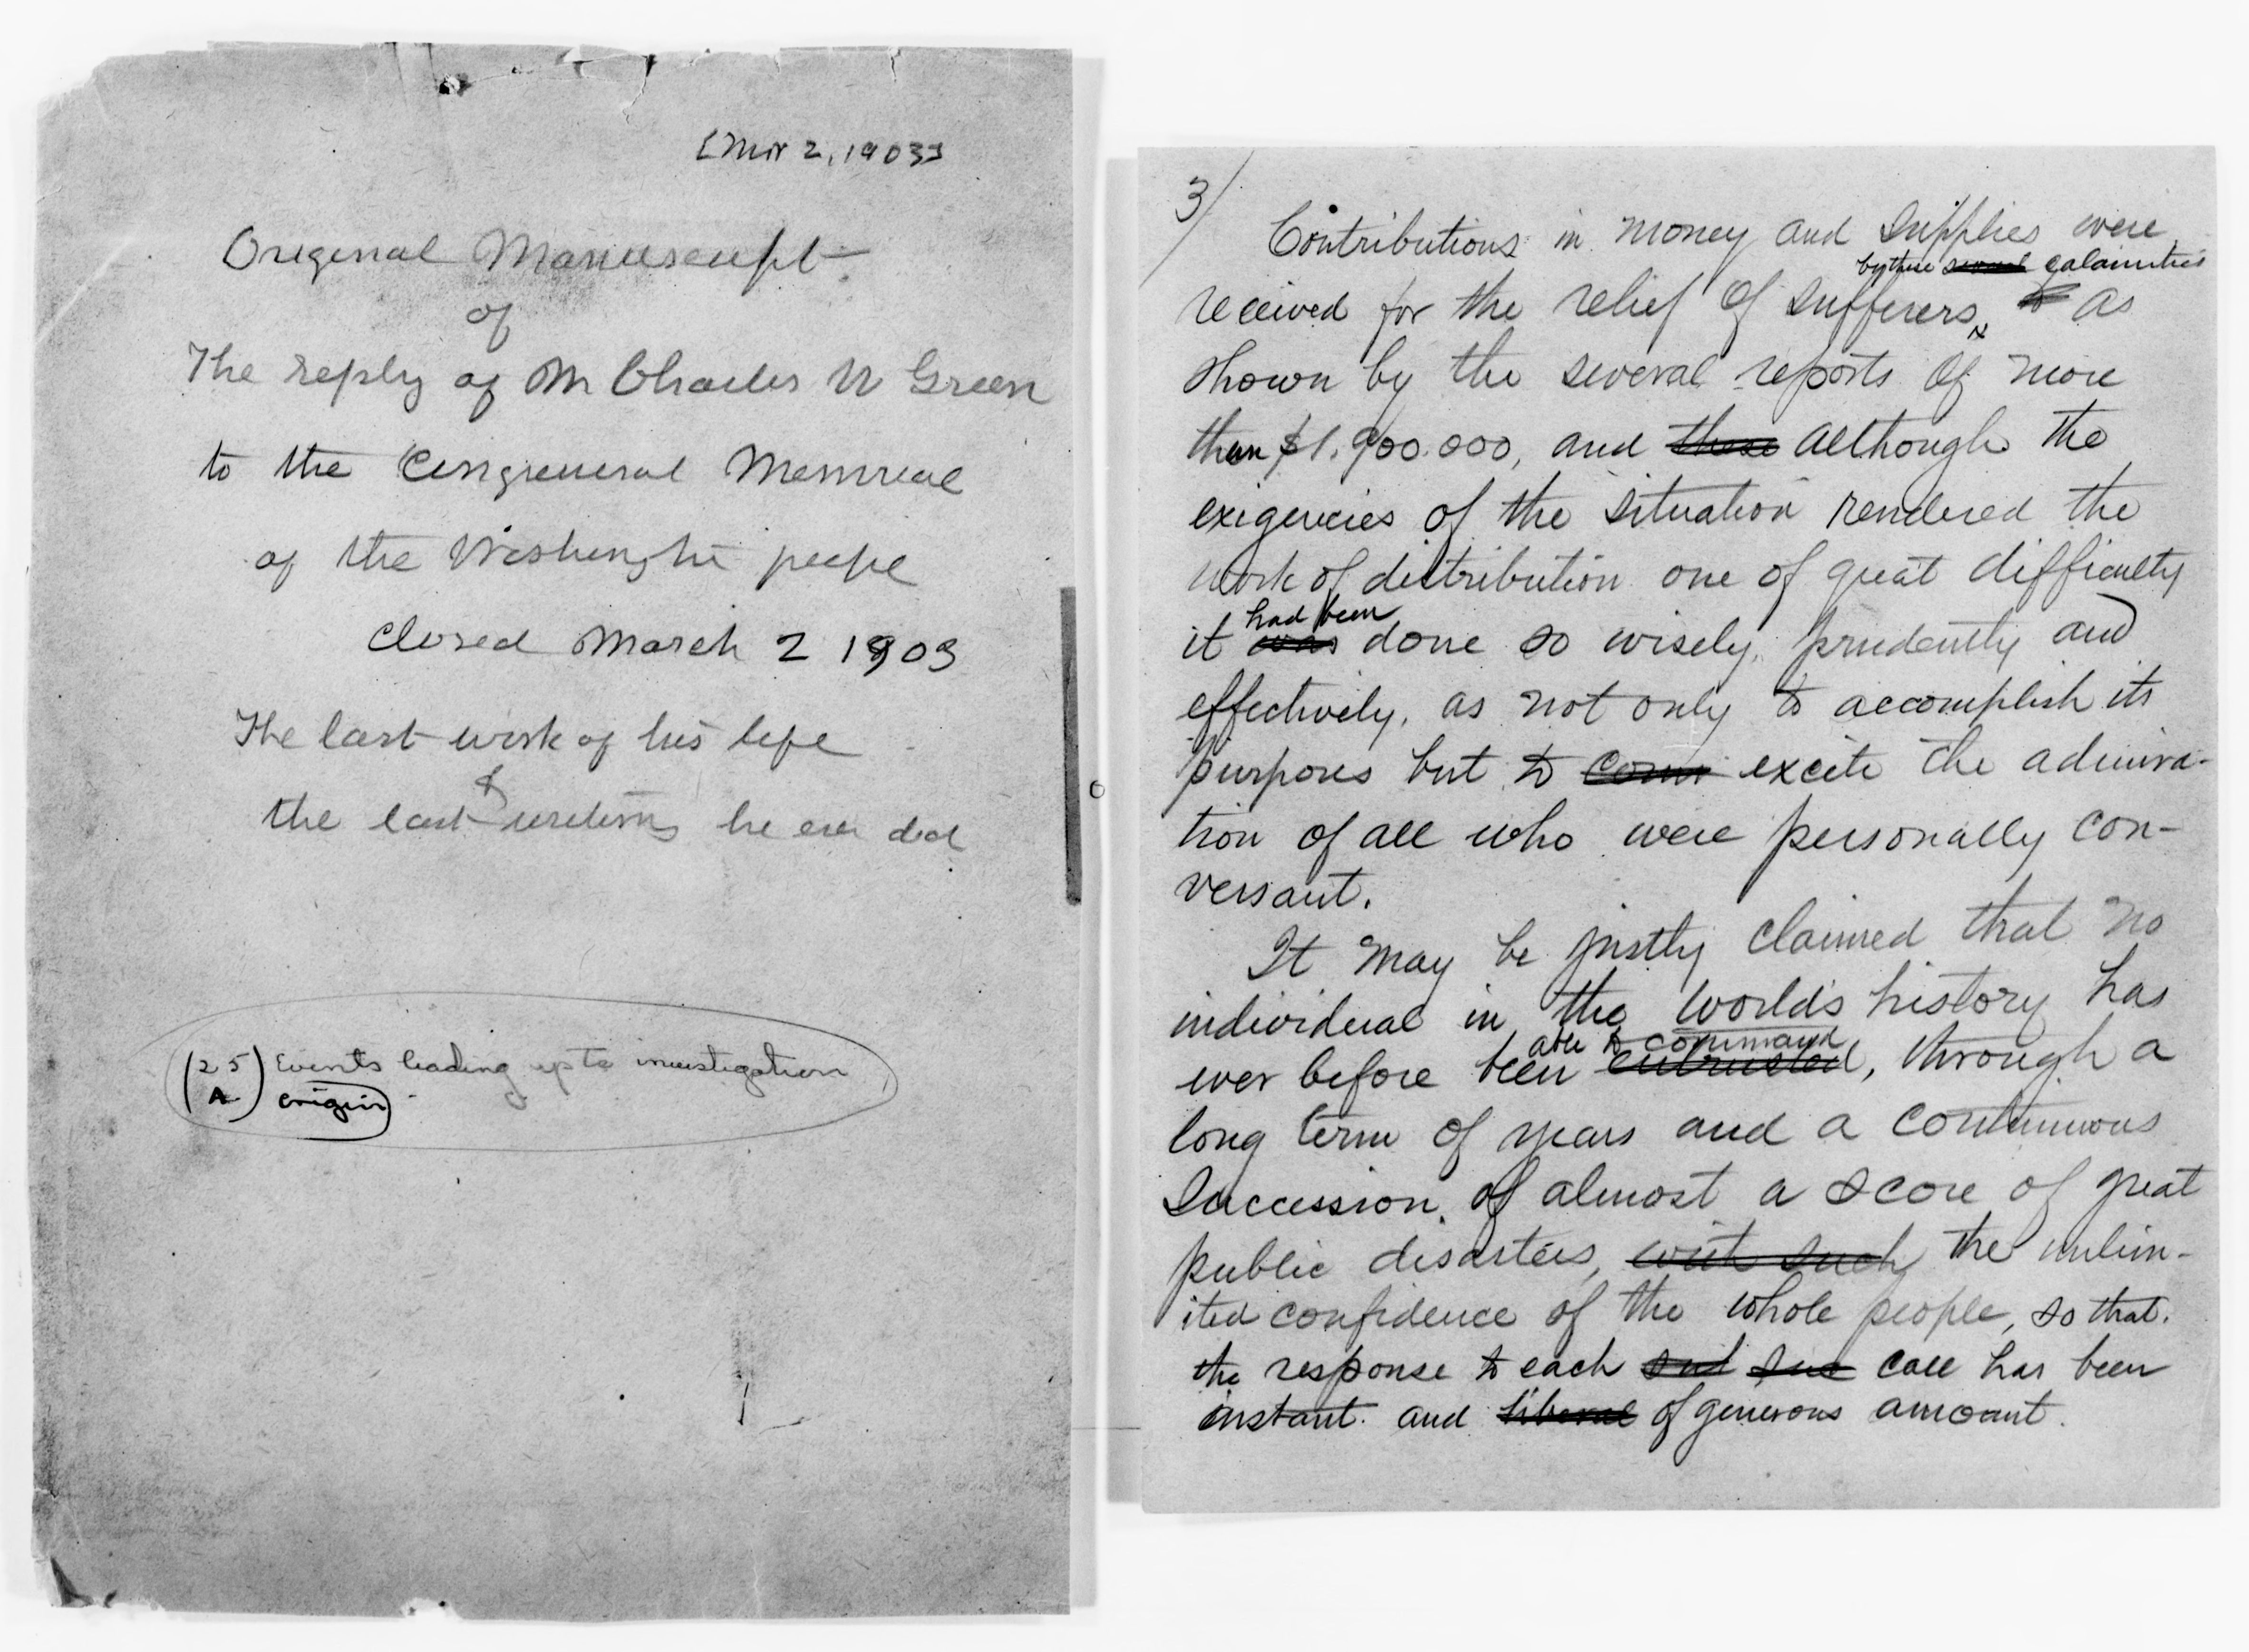 [Mar 2, 1903]
Original Manuscript
of
The reply of M Charles W Green
to the Congressional Memorial
of the Washington people
closed March 2 1903
The last work of his life
&
the last writing he ever did
(25) Events leading up to investigation
A origin
3/
Contributions in money and supplies were
by these several calamities
received for the relief of sufferers, to as
shown by the several reports of more
than $1.900.000, and these although the
exigencies of the situation rendered the
work of distribution one of great difficulty
had been
it was done so wisely, prudently and
effectively, as not only to accomplish its
purposes but to excite the admira-
tion of all who were personally con-
versant.
It may be justly claimed that no
individual in the world's history has
able to command
ever before been entrusted, through a
long term of years and a continuous
succession of almost a score of great
public disasters, with such the unlim-
ited confidence of the whole people, so that.
the response to each call has been
instant and liberal of generous amount.